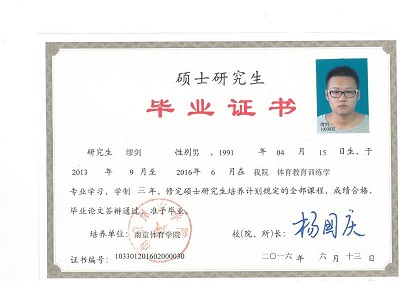 硕士研究生
毕业证书
研究生 缪剑 性别男，1991 年 04 月 15 日生，于
2013 年 9 月至 2016 年 6 月在 我院 体育教育训练学
专业学习，学制 三 年，修完硕士研究生培养计划规定的全部课程，成绩合格，
毕业论文答辩通过，准予毕业。
培养单位：南京体育学院 校(院、所)长：杨国庆
证书编号：103301201602000030 二〇一六 年 六 月 十三 日